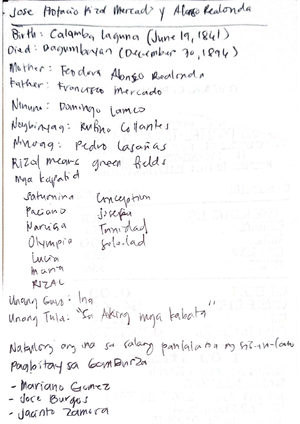 - Jose Protacio Rizal Mercado y Alonzo Realonda
Birth: Calamba laguna (June 19, 1861)
Died: Bagumbayan (December 30, 1896)
Mother: Teodora Alonzo Realonda
Father: Francisco Mercado
Ninuno: Domingo Lamco
Nagbinyag: Rufino Collantes
Ninong: Pedro Casañas
Rizal means green fields
Mga kapatid
Saturnina Concepcion
Paciano Josefa
Narcisa Trinidad
Olympia Soledad
Lucia
Maria
RIZAL
Unang Guro: Ina
Unang Tula: "Sa Aking mga kabata"
Nakulong ang ina sa salang panlalason ng sis-in-law
Pagbitay sa Gomburza
- Mariano Gomez
- Jose Burgos
- Jacinto Zamora